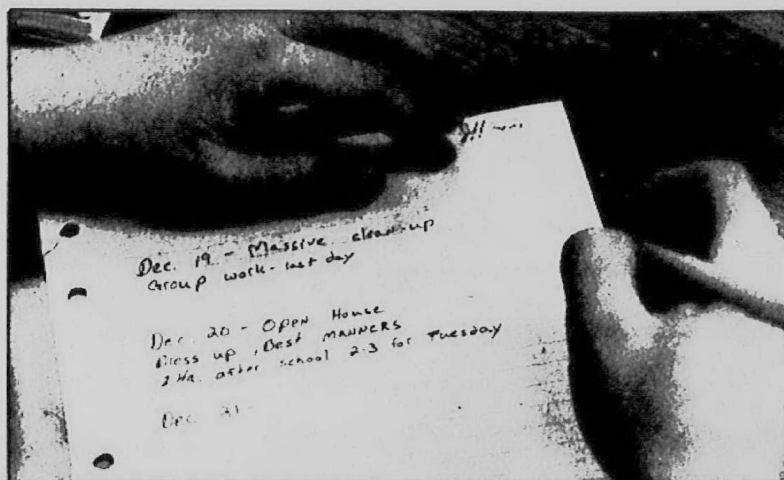 Dec. 19 - Massive clean-up
Group work - last day
Dec. 20 - OPEN House
Dress up, Best MANNERS
1 Hr. after school 2-3 for Tuesday
Dec. 21 -